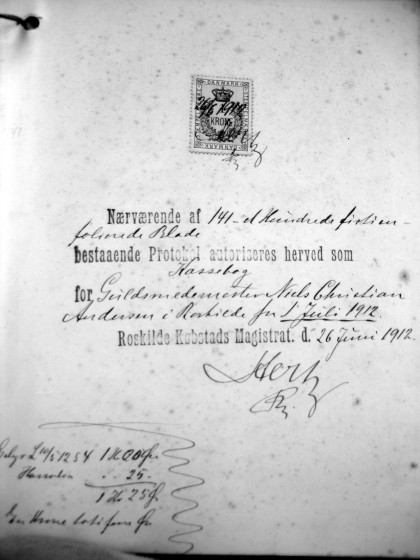 DANMARK
26/6 1912
KRONE
Hertz
Nærværende af 141 et Hundrede firti en
folierede Blade
bestaaende Protokol autoriseres herved som
Kassebog
for Guldsmedemester Niels Christian
Andersen i Roskilde fra 1 Juli 1912.
Roskilde Købstads Magistrat. d. 26 Juni 1912.
Hertz
Gebyr L 1254 1 Kr 00 Ør.
25
1 Kr 25 Ø.
En Krone Ør